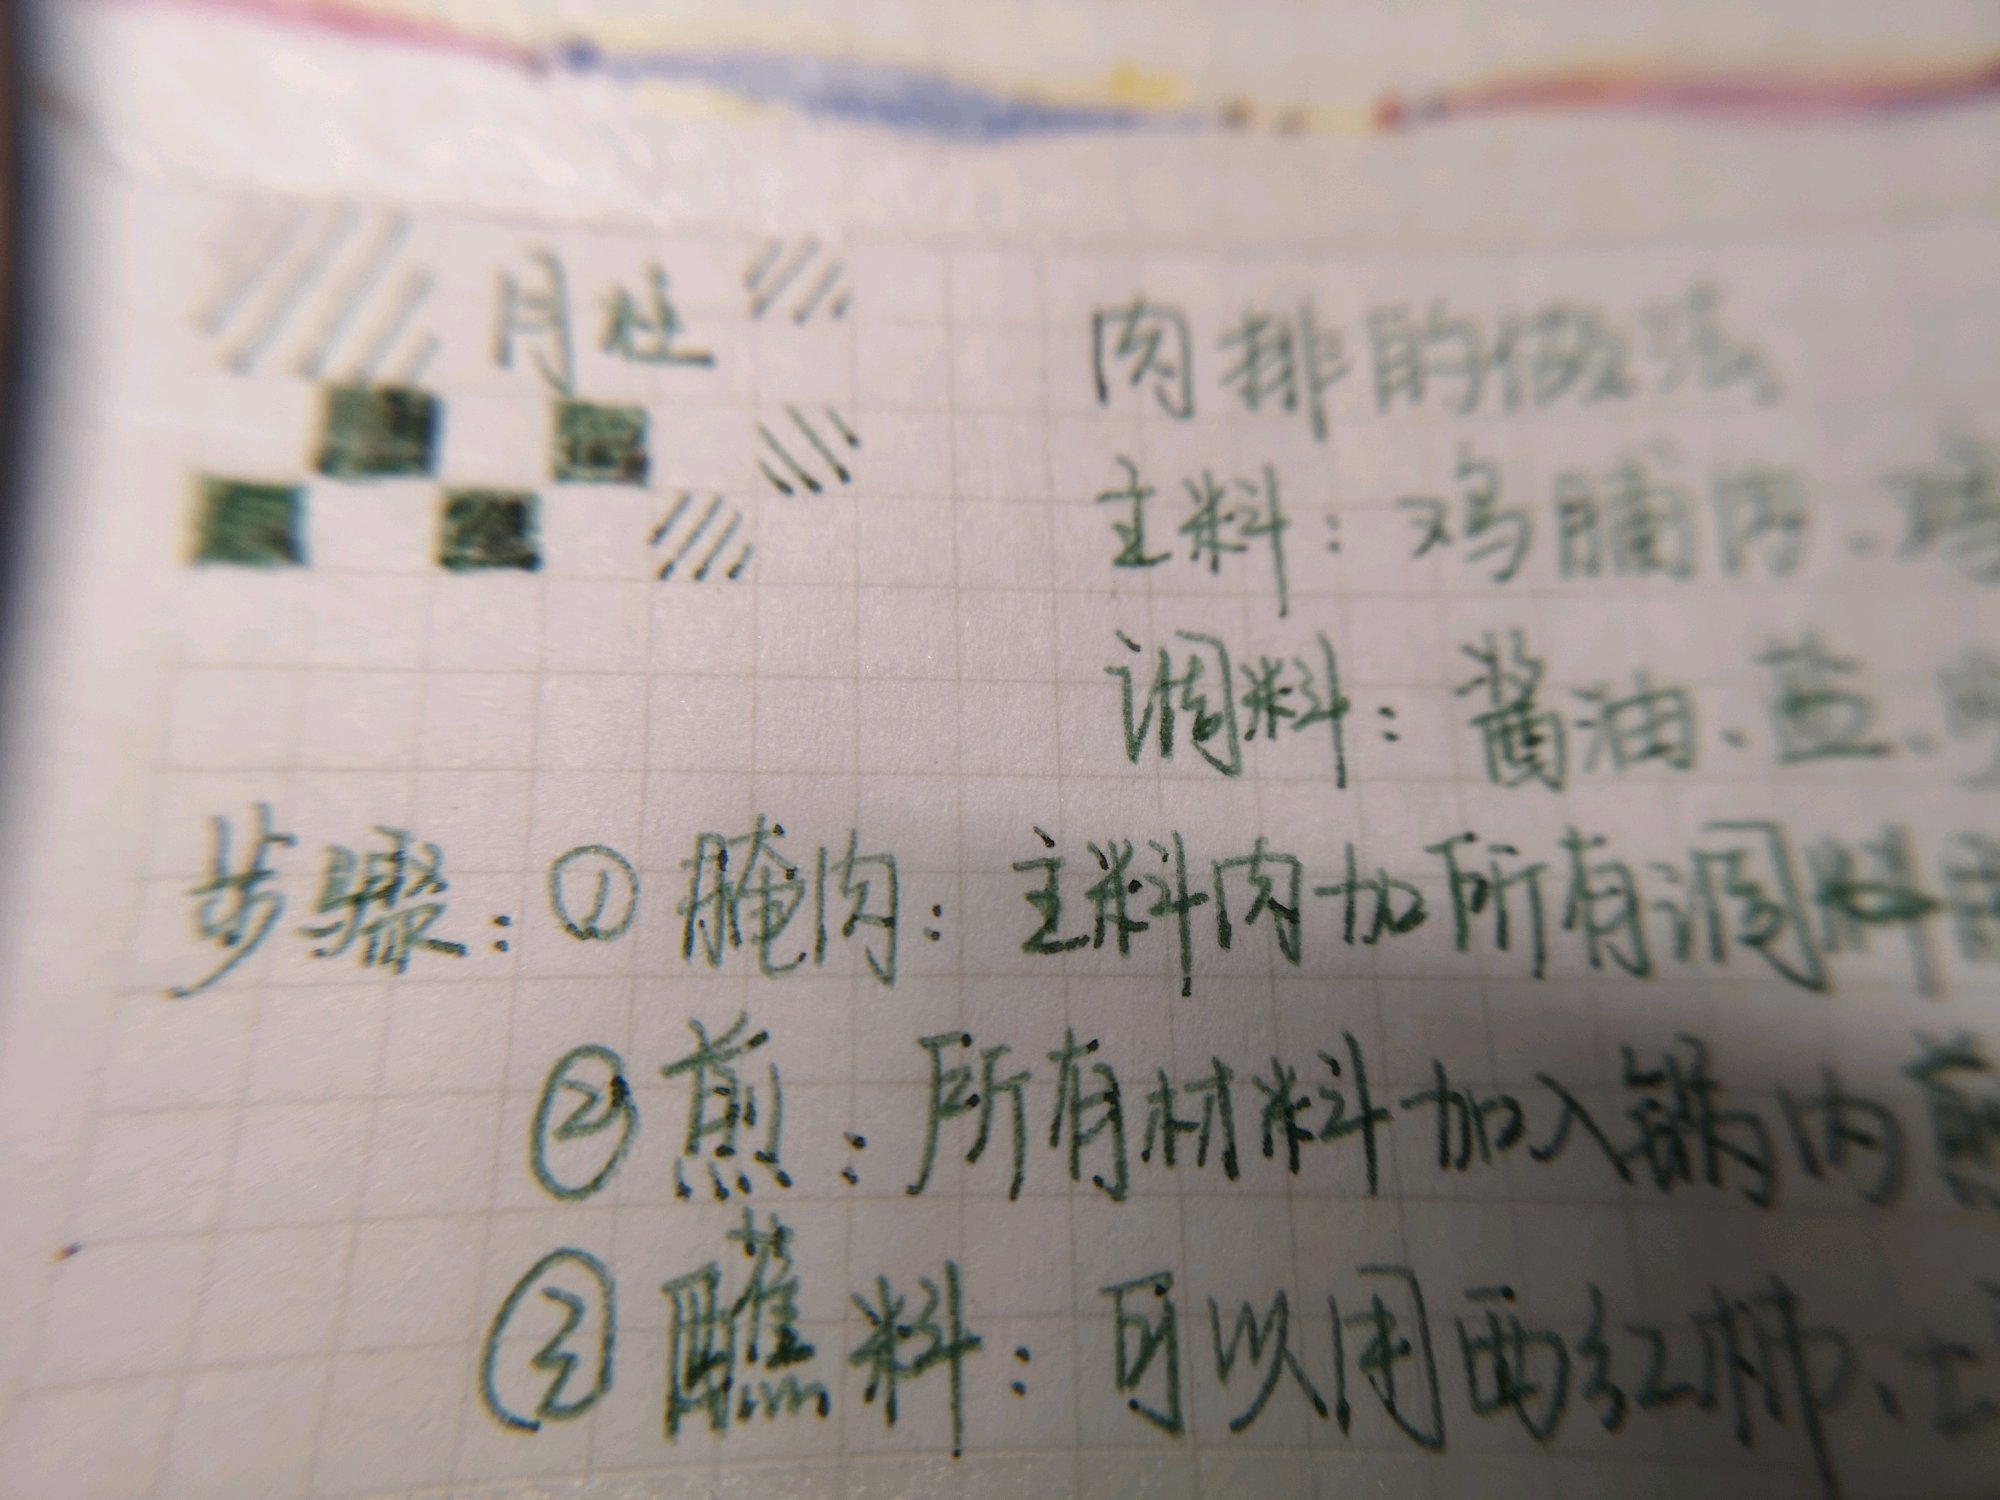 月桂
肉排的做法
主料：鸡脯肉、鸡
调料：酱油、盐、
步骤：①腌肉：主料肉加所有调料
②煎：所有材料加入锅内煎
③蘸料：可以用西红柿、土